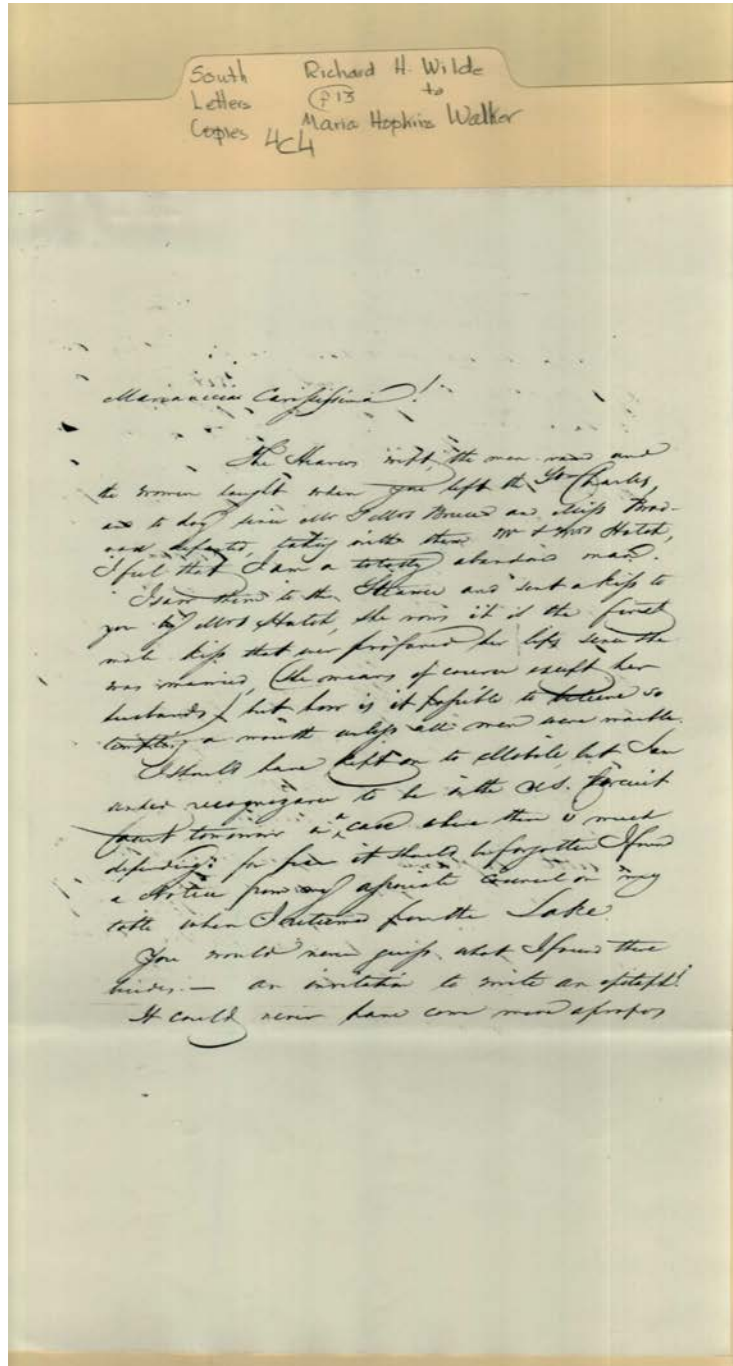 South Richard H. Wilde
Letters P 13 to
Copies Maria Hopkins Walker
4C4
Carissisima!
The Heavens wept, the men and
the women laught when you left the St Charles,
and to day since Mr & Mrs Bruce and Miss
departed, taking with them Mr & Mrs Hatch,
I feel that I am a totally abandoned man.
I saw them to the Steamer and sent a kiss to
you by Mrs Hatch, she vows it is the first
male kiss that ever profaned her lips since she
was married, (she means of course except her
husbands) but how is it possible to believe so
tempting a mouth unless all men were marble.
I should have kept on to Mobile, but I am
under recognizance to be in the U.S. Circuit
Court tomorrow in a case where there is much
depending: for fear it should be forgotten I found
a Notice from my associate Council on my
table when I returned from the Lake.
You would never guess what I found there
besides. — an invitation to write an epitaph!
It could never have come more apropos